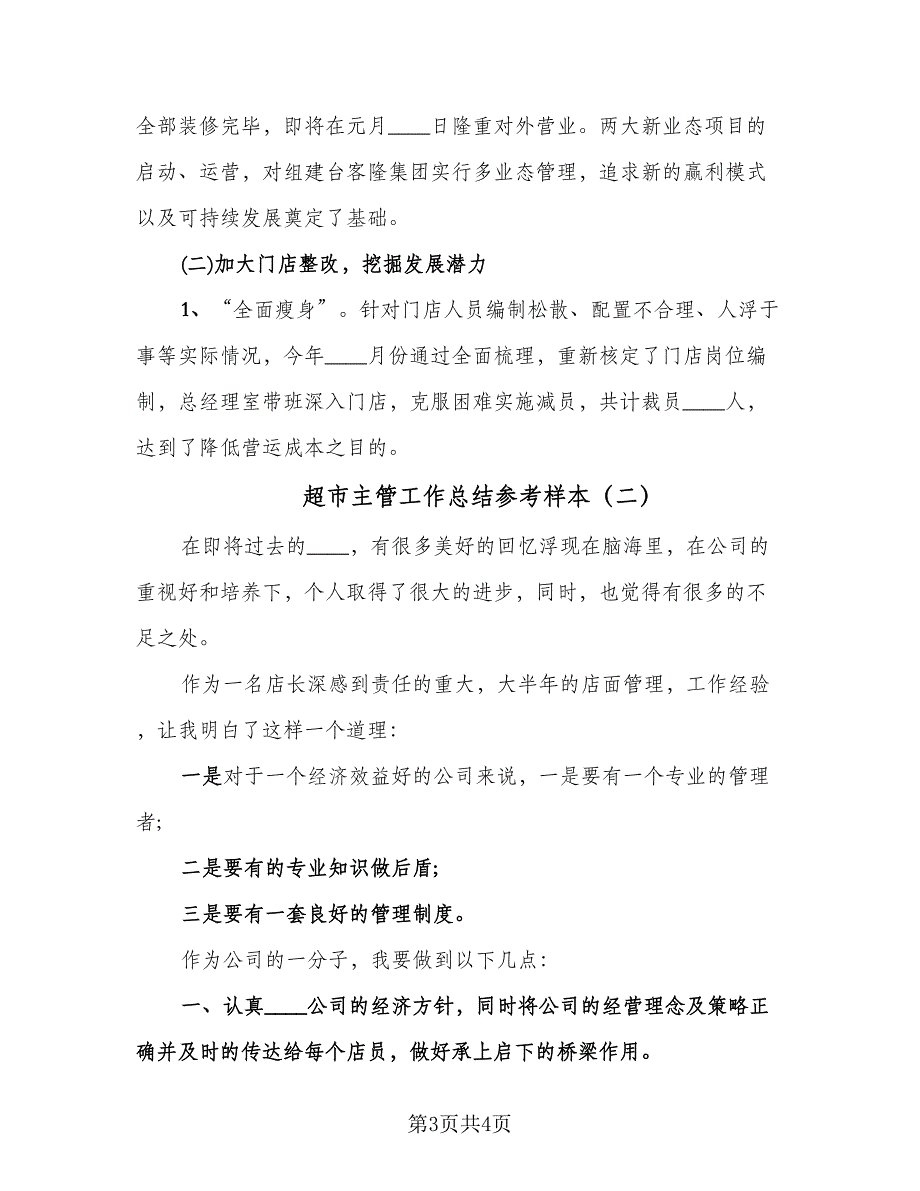 全部装修完毕，即将在元月____日隆重对外营业。两大新业态项目的
启动、运营，对组建台客隆集团实行多业态管理，追求新的赢利模式
以及可持续发展奠定了基础。
(二)加大门店整改，挖掘发展潜力
1、“全面瘦身”。针对门店人员编制松散、配置不合理、人浮于
事等实际情况，今年____月份通过全面梳理，重新核定了门店岗位编
制，总经理室带班深入门店，克服困难实施减员，共计裁员____人，
达到了降低营运成本之目的。
超市主管工作总结参考样本（二）
在即将过去的____，有很多美好的回忆浮现在脑海里，在公司的
重视好和培养下，个人取得了很大的进步，同时，也觉得有很多的不
足之处。
作为一名店长深感到责任的重大，大半年的店面管理，工作经验
，让我明白了这样一个道理：
一是对于一个经济效益好的公司来说，一是要有一个专业的管理
者;
二是要有的专业知识做后盾;
三是要有一套良好的管理制度。
作为公司的一分子，我要做到以下几点：
一、认真____公司的经济方针，同时将公司的经营理念及策略正
确并及时的传达给每个店员，做好承上启下的桥梁作用。
第3页共4页